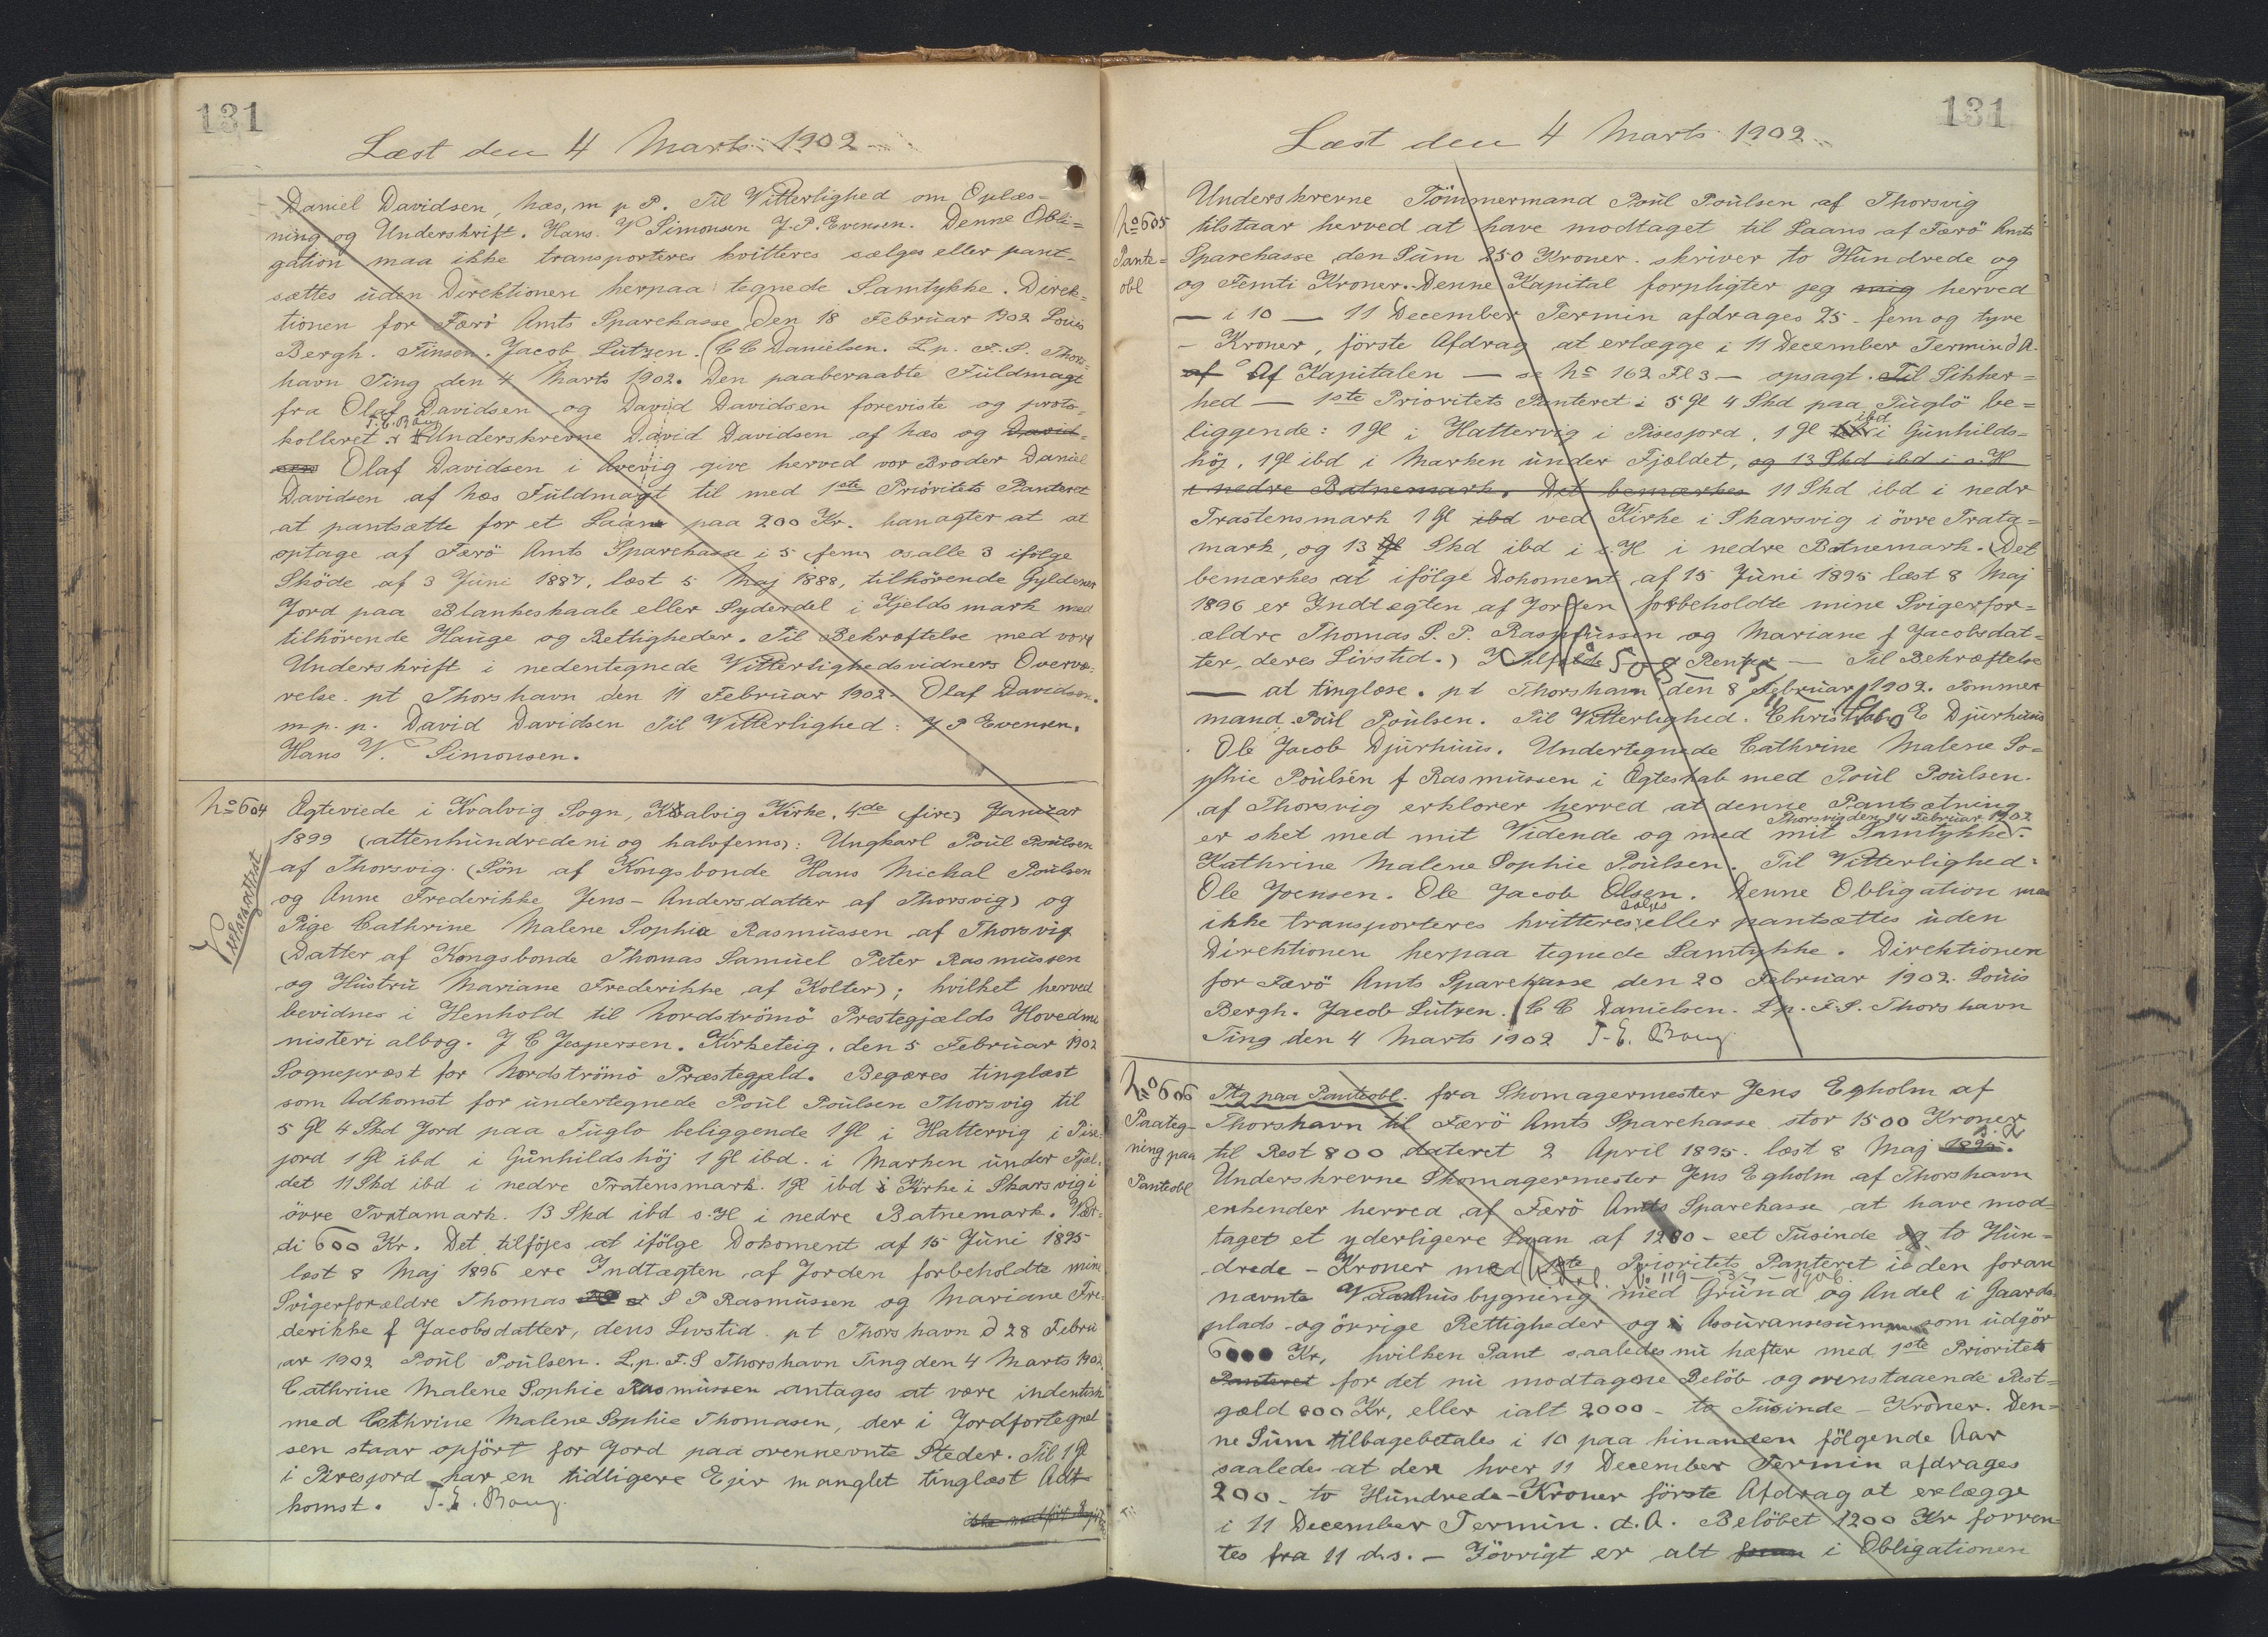 131
Læst den 4 Marts 1902
Daniel Davidsen, Næs, m p P. Til Witterlighed om Oplæs-
ning og Underskrift. Hans V Simonsen J. P. Evensen. Denne Obli=
gation maa ikke transporteres kvitteres sælges eller pant-
sættes uden Direktionen herpaa tegnede Samtykke. Direk-
tionen for Færö Amts Sparekasse den 18 Februar 1902 Louis
Bergh. Finsen. Jacob Lützen. (C C Danielsen. L.p. F. S. Thors-
havn Ting den 4 Marts 1902. Den paaberaabte Fuldmagt
fra Olaf Davidsen og David Davidsen foreviste og proto-
T. E. Bang
kolleret Underskrevne David Davidsen af Næs og David-
sen Olaf Davidsen i Arevig give herved vor Broder Daniel
Davidsen af Næs Fuldmagt til med 1ste Prioritets Panteret
at pantsætte for et Laan paa 200 Kr. han agter at at
optage af Færö Amts Sparekasse i 5 (fem) os alle 3 ifølge
Sköde af 3 Juni 1887, læst 5 Maj 1888, tilhörende Gylden
Jord paa Blankeskaale eller Syderdel i Kjelds mark med
tilhörende Hauge og Rettigheder. Til Bekræftelse med vor
Underskrift i nedentegnede Witterlighedsvidners Overvæ-
relse. pt Thorshavn den 11 Februar 1902. Olaf Davidsen.
m. p. p. David Davidsen Til Witterlighed: J P Evensen.
Hans V. Simonsen.
No 604 Ægteviede i Kvalvig Sogn, Kvalvig Kirke, 4de (fire) Januar
1899 (attenhundredeni og halvfems): Ungkarl Poul Poulsen
Vielsesattest
af Thorsvig. (Sön af Kongsbonde Hans Michal Poulsen
og Anne Frederikke Jens-Andersdatter af Thorsvig) og
Pige Cathrine Malene Sophia Rasmussen af Thorsvig
(Datter af Kongsbonde Thomas Samuel Peter Rasmussen
og Hustru Mariane Frederikke af Kolter); hvilket herved
bevidnes i Henhold til Nordströmö Prestegjælds Hovedmi
nisteri albog. J C Jespersen. Kirketeig, den 5 Februar 1902
Sognepræst for Nordströmö Præstegjeld. Begæres tinglæst
som Adkomst for undertegnede Poul Poulsen Thorsvig til
5 Gl 4 Skd Jord paa Fuglo beliggende 1 Gl i Hattervig i Pise-
jord 1 Gl ibd i Gunhildshöj 1 Gl ibd. i Marken under Fjæl-
det 11 Skd ibd i nedre Tratensmark. 1 Gl ibd i Kirke i Skarsvig i
övre Tratamark. 13 Skd ibd s. H i nedre Batnemark. Vær-
di 600 Kr. Det tilföjes at ifölge Dokoment af 15 Juni 1895
læst 8 Maj 1896 ere Indtægten af Jorden forbeholdte mine
Svigerforældre Thomas S P Rasmussen og Mariane Fre-
derikke f Jacobsdatter, dens Livstid. pt Thorshavn d 28 Febru
ar 1902 Poul Poulsen. L.p. F. S Thorshavn Ting den 4 Marts 1902.
Cathrine Malene Sophie Rasmussen antages at være indentisk
med Cathrine Malene Sophie Thomasen, der i Jordfortegnel
sen staar opfört for Jord paa ovennevnte Steder. Til 1 Gl
i Piresjord har en tidligere Ejer manglet tinglæst Adt
komst. T. E. Bang.
131
Læst den 4 Marts 1902
No 605
Pante=
obl
Underskrevne Tömmermand Poul Poulsen af Thorsvig
tilstaar herved at have modtaget til Laans af Færö Amts
Sparekasse den Sum 250 Kroner. skriver to Hundrede og
og Femti Kroner. Denne Kapital forpligter jeg mig herved
— i 10 — 11 December Termin afdrages 25 - fem og tyve
- Kroner, förste Afdrag at erlægge i 11 December Termin d A.
af Af Kapitalen — se No 162 Fl 3 — opsagt. Til Sikker=
hed — 1ste Prioritets Panteret i 5 Gl 4 Skd paa Fuglö be=
liggende: 1 Gl i Hattervig i Pisesjord, 1 Gl ibd i Gunhilds=
höj, 1 Gl ibd i Marken under Fjældet, og 13 Skd ibd i s. H
i nedre Batnemark. Det bemærkes 11 Skd ibd i nedr
Trastensmark 1 Gl ibd ved Kirke i Skarsvig i övre Trata=
mark, og 13 Gl Skd ibd i s. H i nedre Batnemark. (Det
bemærkes at ifölge Dokoment af 15 Juni 1895 læst 8 Maj
1896 er Indtægten af Jorden forbeholdte mine Svigerfor=
ældre Thomas S. P. Rasmussen og Mariane f Jacobsdat=
ter, deres Livstid.) I Tilfælde Renter — Til Bekræftelse
— at tinglæse. pt Thorshavn den 8 Februar 1902. Tömmer
mand Poul Poulsen. Til Witterlighed. E Djurhuus
Ole Jacob Djurhuus. Undertegnede Cathrine Malene So=
phie Poulsen f Rasmussen i Ægteskab med Poul Poulsen
af Thorsvig erklærer herved at denne Pantsætning
Thorsvig den 14 Februar 1902
er sket med mit Vidende og med mit Samtykke.
Kathrine Malene Sophie Poulsen. Til Vitterlighed:
Ole Joensen. Ole Jacob Olsen. Denne Obligation maa
ikke transporteres kvitteres sælges eller pantsættes uden
Direktionen herpaa tegnede Samtykke. Direktionen
for Færö Amts Sparekasse den 20 Februar 1902. Louis
Bergh. Jacob Lützen. (C C Danielsen. L.p. F. S. Thorshavn
Ting den 4 Marts 1902 T. E. Bang
No 606
Paateg-
ning paa
Panteobl
Ptg paa Panteobl. fra Skomagermester Jens Egholm af
Thorshavn til Færö Amts Sparekasse stor 1500 Kroner
til Rest 800 dateret 2 April 1895. læst 8 Maj 1895.
Underskrevne Skomagermester Jens Egholm af Thorshavn
erkender herved af Færö Amts Sparekasse at have mod=
taget et yderligere Laan af 1200 - eet Tusinde og to Hun=
drede - Kroner med 1ste Prioritets Panteret i den foran
Udsl. No 119 - 1906.
nævnte Vaanhusbygning med Grund og Andel i Gaards-
plads og övrige Rettigheder og i Assuransesummen som udgör
6000 Kr, hvilken Pant saaledes nu hæfter med 1ste Prioritets
Panteret for det nu modtagne Belöb og ovenstaaende Rest=
gæld 800 Kr, eller ialt 2000 - to Tusinde - Kroner. Den=
ne Sum tilbagebetales i 10 paa hinanden fölgende Aar
saaledes at der hver 11 December Termin afdrages
200 - to Hundrede - Kroner förste Afdrag at erlægge
i 11 December Termin. d. A. Belöbet 1200 Kr forren=
tes fra 11 d.s. - Iövrigt er alt foran i Obligationen